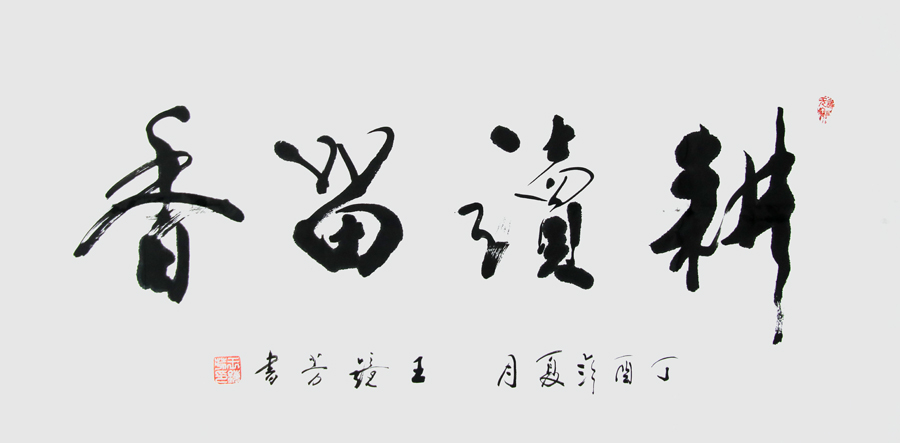 耕讀留香
丁酉年夏月 王 芳書